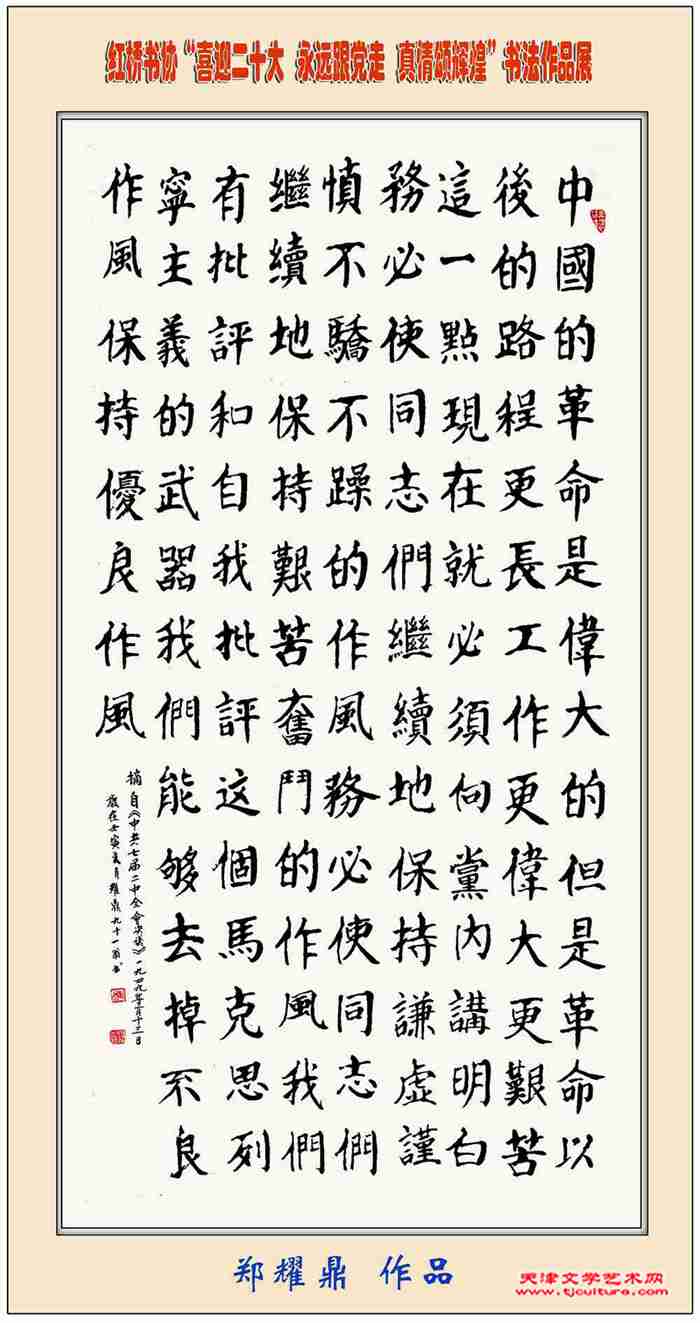 红桥书协“喜迎二十大 永远跟党走 真情颂辉煌”书法作品展
中國的革命是偉大的但是革命以
後的路程更長工作更偉大更艱苦
這一點現在就必須向黨内講明白
務必使同志們繼續地保持謙虛謹
慎不驕不躁的作風務必使同志們
繼續地保持艱苦奮鬥的作風我們
有批評和自我批評这個馬克思列
寧主義的武器我們能够去掉不良
作風保持優良作風
摘自《中共七届二中全會決議》一九四九年三月十三日
歲在壬寅亥月耀鼎九十一翁书
郑耀鼎 作品
天津文学艺术网
www.tjculture.com